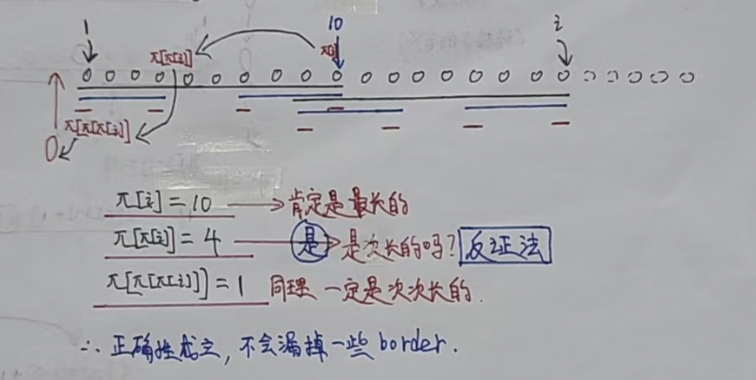 1 10 i
π[π[i]] π[i]
π[π[π[i]]]
0
π[i] = 10 → 肯定是最长的
π[π[i]] = 4 → 是 是次长的吗? 反证法
π[π[π[i]]] = 1 同理 一定是次次长的.
∴ 正确性成立, 不会漏掉一些 border.